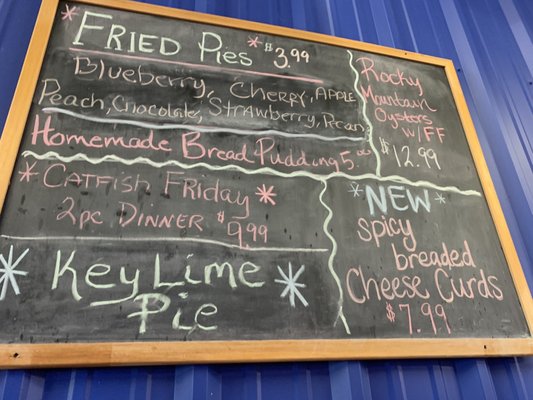 * FRIED Pies * $3.99
Blueberry, Cherry, APPLE
Peach, Chocolate, Strawberry, Pecan
Homemade Bread Pudding 5.00
* Catfish Friday *
2pc DINNER $9.99
* Key Lime *
Pie
Rocky
Mountain
Oysters
w/FF
$12.99
* NEW *
Spicy
breaded
Cheese Curds
$7.99